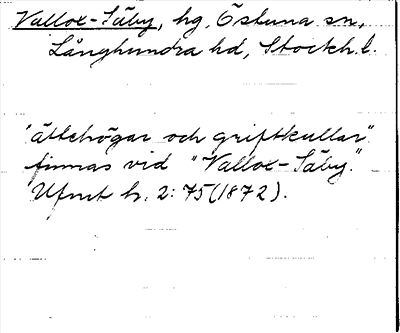 Vallox-Säby, hg, Östuna sn,
Långhundra hd, Stockh. l.
"ättehögar och griftkullar"
finnas vid "Vallox-Säby."
Ufmt h. 2: 75 (1872).